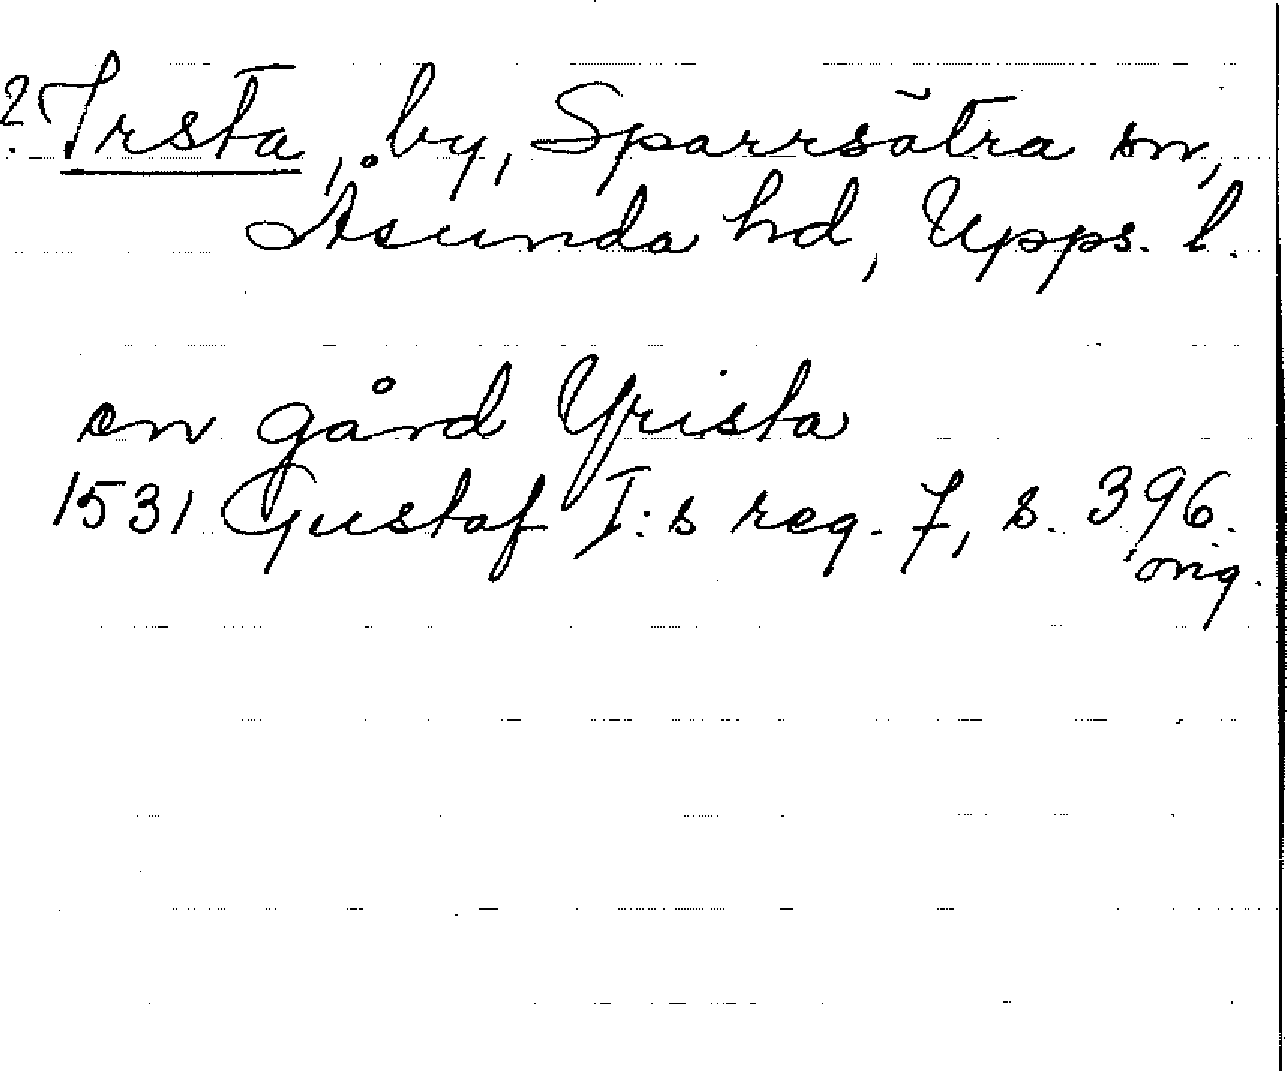 ? Irsta, by, Sparrsätra sn,
Åsunda hd, Upps. l.
en gård Yrista
1531 Gustaf I:s reg. 7, s. 396.
orig.